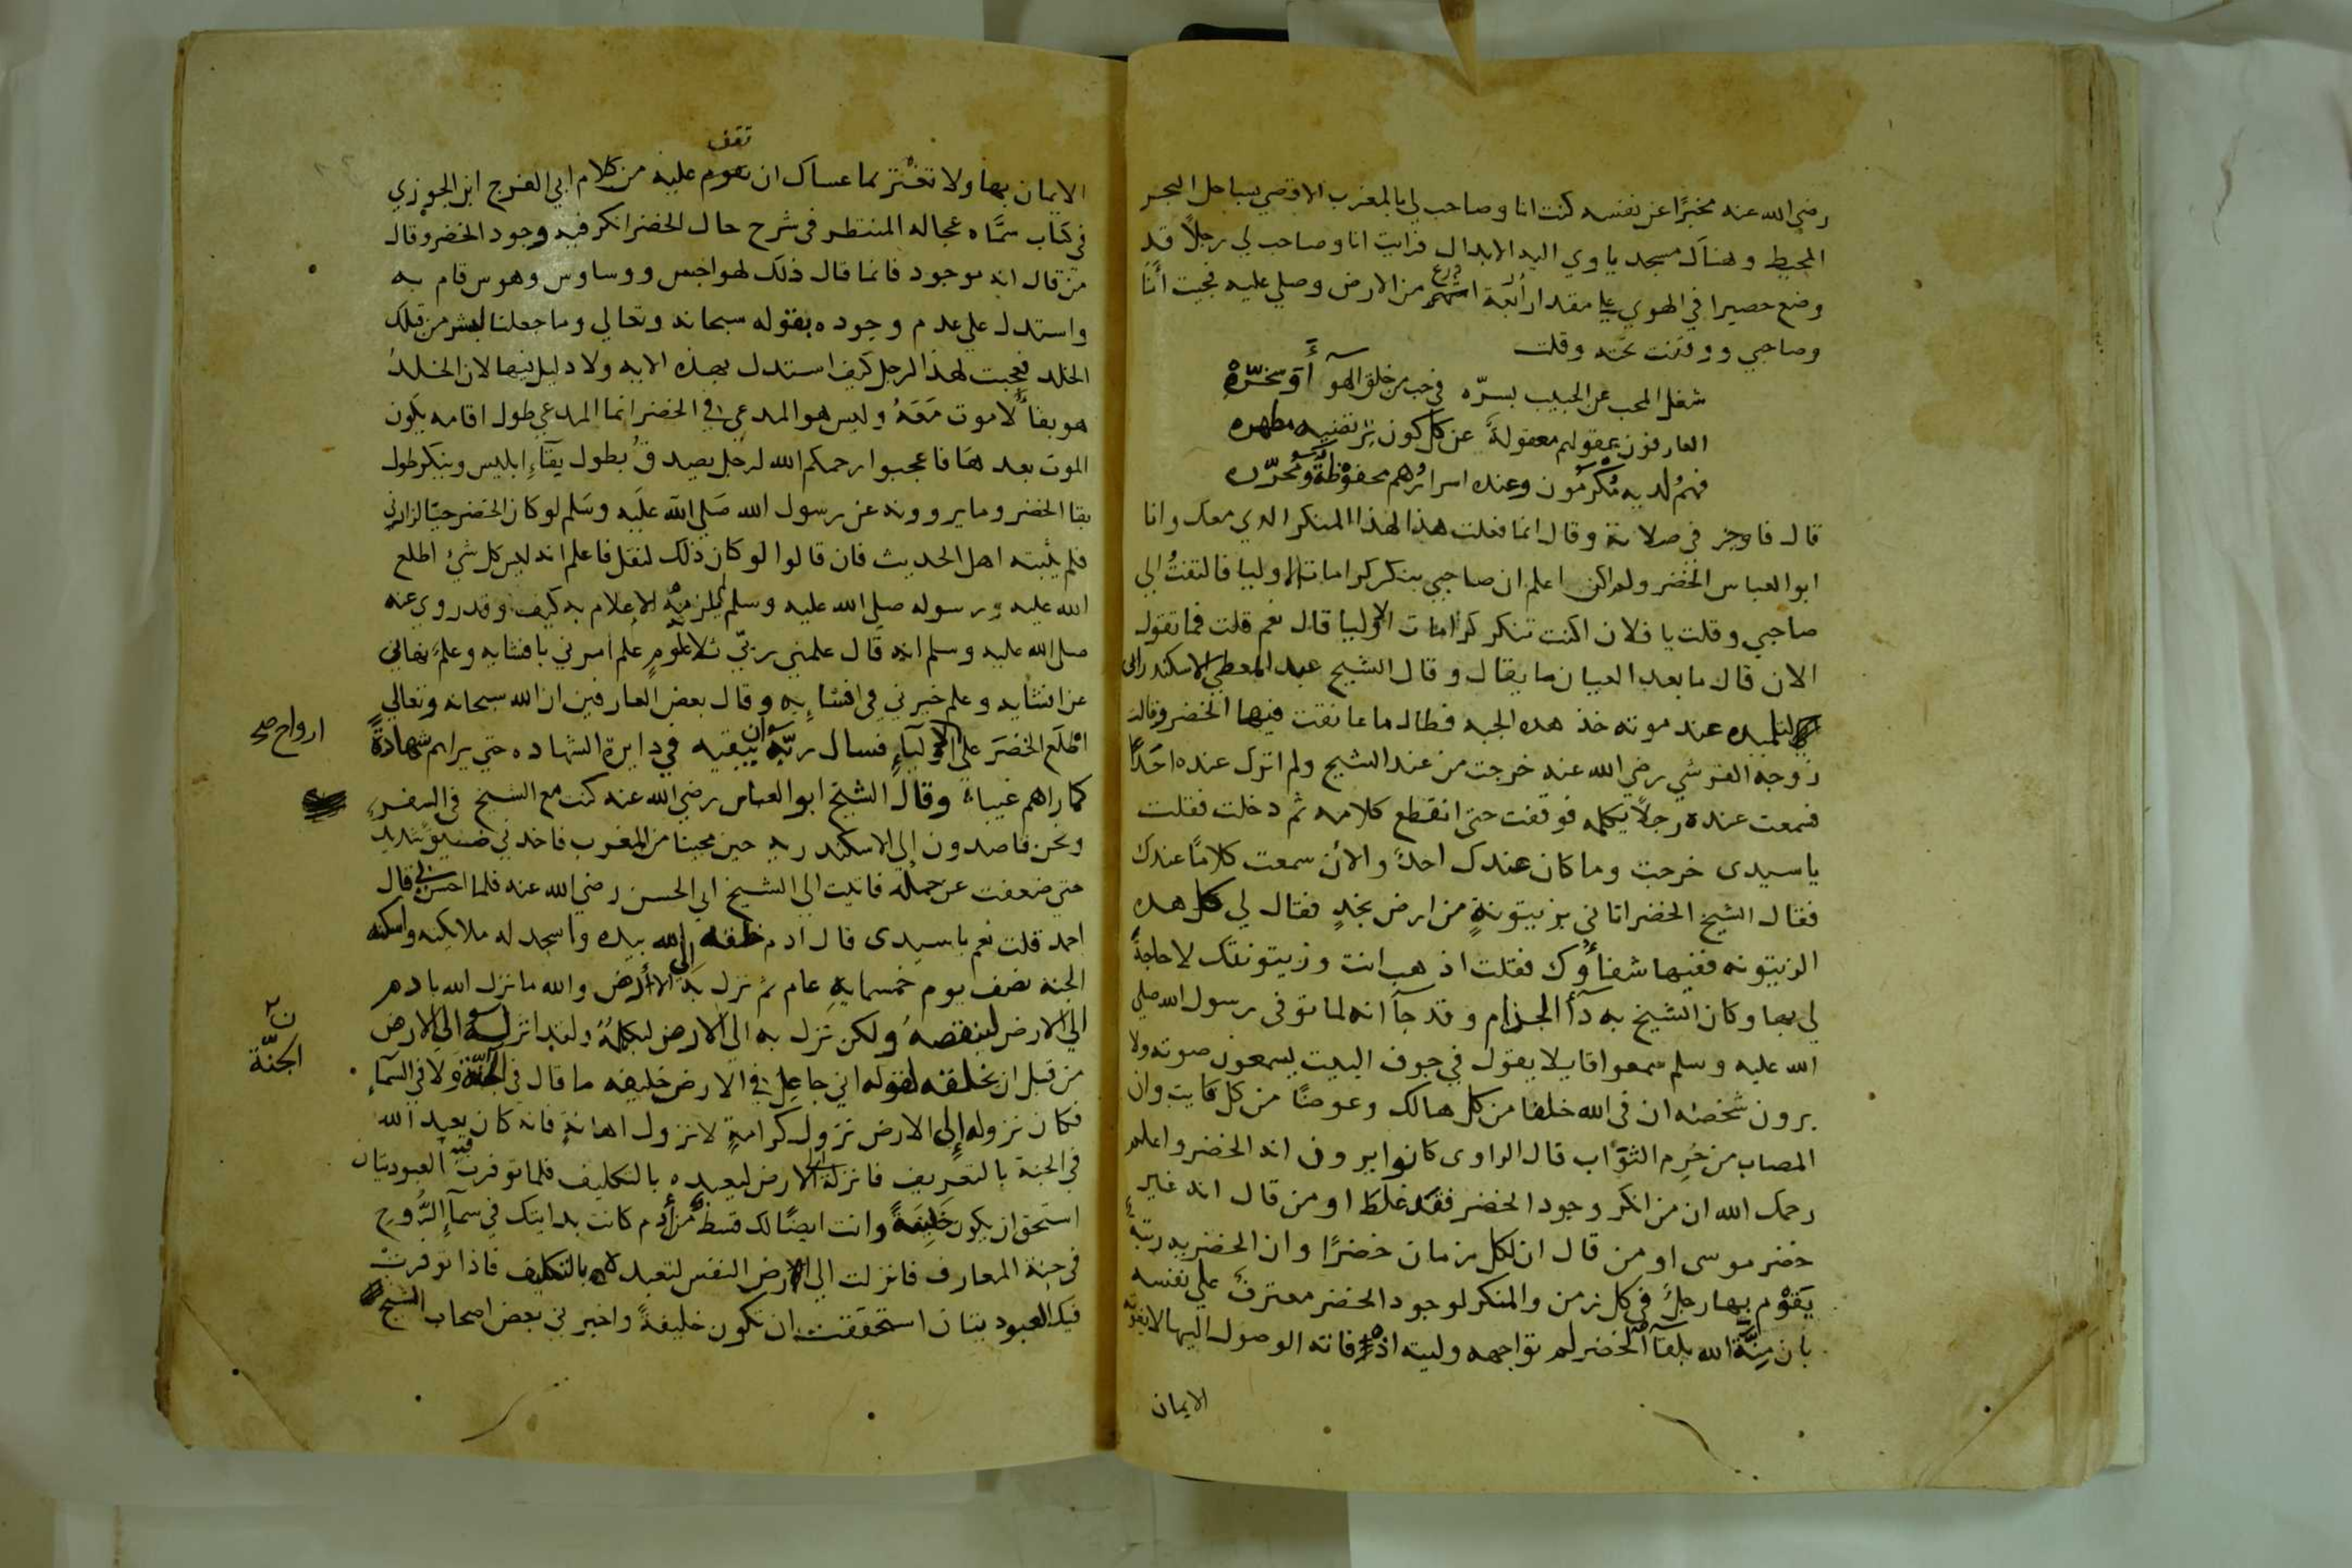 رضي الله عنه مخبرًا عن نفسه كنت انا وصاحب لي بالمغرب الاقصي بساحل البحر
المحيط وهناك مسجد ياوي اليه الابدال فرايت انا وصاحب لي رجلاً قد
وضع حصيرا في الهوي علي مقدار اربعة اذرع من الارض وصلي عليه فجيت انا
وصاحبي ووقفت تحته وقلت
شغل المحب عن الحبيب بسرّه في حب من خلق الهوآء وسخّره
العارفون عقولهم معقولة عن كل كون ترتضيه مطهره
فهمُ لديه مُكرمون وعنده اسرارُهم محفوظة ومُحرّره
قال فاوجز في صلاته وقال انما فعلت هذا لهذا المنكر الدي معك وانا
ابو العباس الخضر ولم اكن اعلم ان صاحبي ينكر كرامات الاوليا فالتفتُ الي
صاحبي وقلت يا فلان اكنت تنكر كرامات الاوليا قال نعم قلت فما تقول
الان قال ما بعد العيان ما يقال وقال الشيخ عبد المعطي الاسكندراني
لتلميده عند موته خذ هده الجبه فطال ما عانقت فيها الخضر وقالت
زوجة القرشي رضي الله عنه خرجت من عند الشيخ ولم اترك عنده احدًا
فسمعت عنده رجلاً يكلمه فوقفت حتي انقطع كلامه ثم دخلت فقلت
يا سيدى خرجت وما كان عندك احدٌ والان سمعت كلامًا عندك
فقال الشيخ الخضر اتاني بزيتونةٍ من ارض نجدٍ فقال لي كل هده
الزيتونه ففيها شفآوك فقلت اذهب انت وزيتونتك لا حاجة
لي بها وكان الشيخ به دآء الجذام وقد جآ انه لما توفي رسول الله صلي
الله عليه وسلم سمعوا قايلا يقول في جوف البيت يسمعون صوته ولا
يرون شخصه ان في الله خلفا من كل هالك وعوضًا من كل فايت وان
المصاب من حُرِم الثوّاب قال الراوى كانوا يرون انه الخضر واعلم
رحمك الله ان من انكر وجود الخضر فقد غلط او من قال انه غير
خضر موسى او من قال ان لكل زمان خضرًا وان الخضريه رتبة
يَقوْم بها رجلٌ في كل زمن والمنكر لوجود الخضر معترف علي نفسه
بان مِنَّة الله بلقآ الخضر لم تواجهه وليته اذ فاته الوصول اليها لا يفوته
الايمان
الايمان بها ولا تغتر بما عساك ان تقف عليه من كلام ابي الفرج ابن الجوزي
في كتاب سمَّاه عجاله المنتظر في شرح حال الخضر انكر فيه وجود الخضر وقال
من قال انه موجود فانما قال ذلك لهواجس ووساوس وهوس قام به
واستدل علي عدم وجوده بقوله سبحانه وتعالي وما جعلنا لبشر من قبلك
الخلد فعجبت لهذا الرجل كيف استدل بهذه الايه ولا دليل فيها لان الخلدُ
هو بقآٌ لا موت مَعَهُ وليس هو المدعى في الخضر انما المدعي طول اقامه يكون
الموت بعدها فاعجبوا رحمكم الله لرجل يصدق بطول بقآءِ ابليس وينكر طول
بقا الخضر وما يروونه عن رسول الله صَلي الله علَيه وسَلم لو كان الخضر حيّا لزارني
فلم يثبته اهل الحديث فان قالوا لو كان ذلك لنقل فاعلم انه ليس كل شئ اطلع
الله عليه رسوله صلي الله عليه وسلم يلزمه الاعلام به كيف وقد روي عنه
صلي الله عليه وسلم انه قال علمني ربّي ثلاثة علومٍ علم امرني بافشايه وعلم نهاني
عن افشايه وعلم خيرني في افشايه وقال بعض العارفين ان الله سبحانه وتعالي
اطْلَع الخضَرَ علي ارواح الاوليآءِ فسال ربّه ان يبقيه في دايرة الشهاده حتي يراهم شهادةً
ارواح صح
كما راهم غيباً وقال الشيخ ابو العباس رضي الله عنه كنت مع الشيخ في السفرِ
ونحن قاصدون الي الاسكندريه حين مجينا من المغرب فاخذني ضيق شديد
حتي ضعفت عن حمله فاتيت الي الشيخ ابي الحسن رضي الله عنه فلما احس بي قال
احمد قلت نعم يا سيدى قال ادم خلقه الله بيده واسجد له ملايكته واسكنه
الجنه نصف يوم خمسمايه عام ثم نزل به الي الارض والله ما نزل الله بادم
الي الارض لينقصهُ ولكن نزل به الي الارض ليكملهُ ولقد انزله الي الارض
من قبل ان يخلقه لقوله اني جاعل في الارض خليفه ما قال في الجنة ولا في السمآءِ
الجنّة
فكان نزوله إلى الارض نزول كرامةٍ لا نزول اهانةٍ فانه كان يعبد الله
في الجنة بالتعريف فانزله الي الارض ليعبده بالتكليف فلما توفرت فيه العبوديتان
استحق ان يكون خليفةً وانت ايضًا لك قسط من أدم كانت بدايتك في سمآءِ الرُّوح
في جنة المعارف فانزلت الي ارض النفس لتعبده بالتكليف فاذا توفرتْ
فيك العبوديتان استحققت ان تكون خليفةً واخبرني بعض اصحاب الشيخ